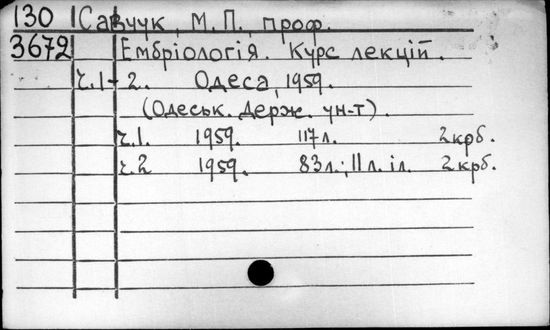 130 Савчук, М. П., проф.
3672 Ембріологія. Курс лекцій.
ч.1-2. Одеса, 1959.
(Одеськ. держ. ун-т).
ч.1. 1959. 117л. 2крб.
ч.2 1959. 83л.; 11л. іл. 2крб.